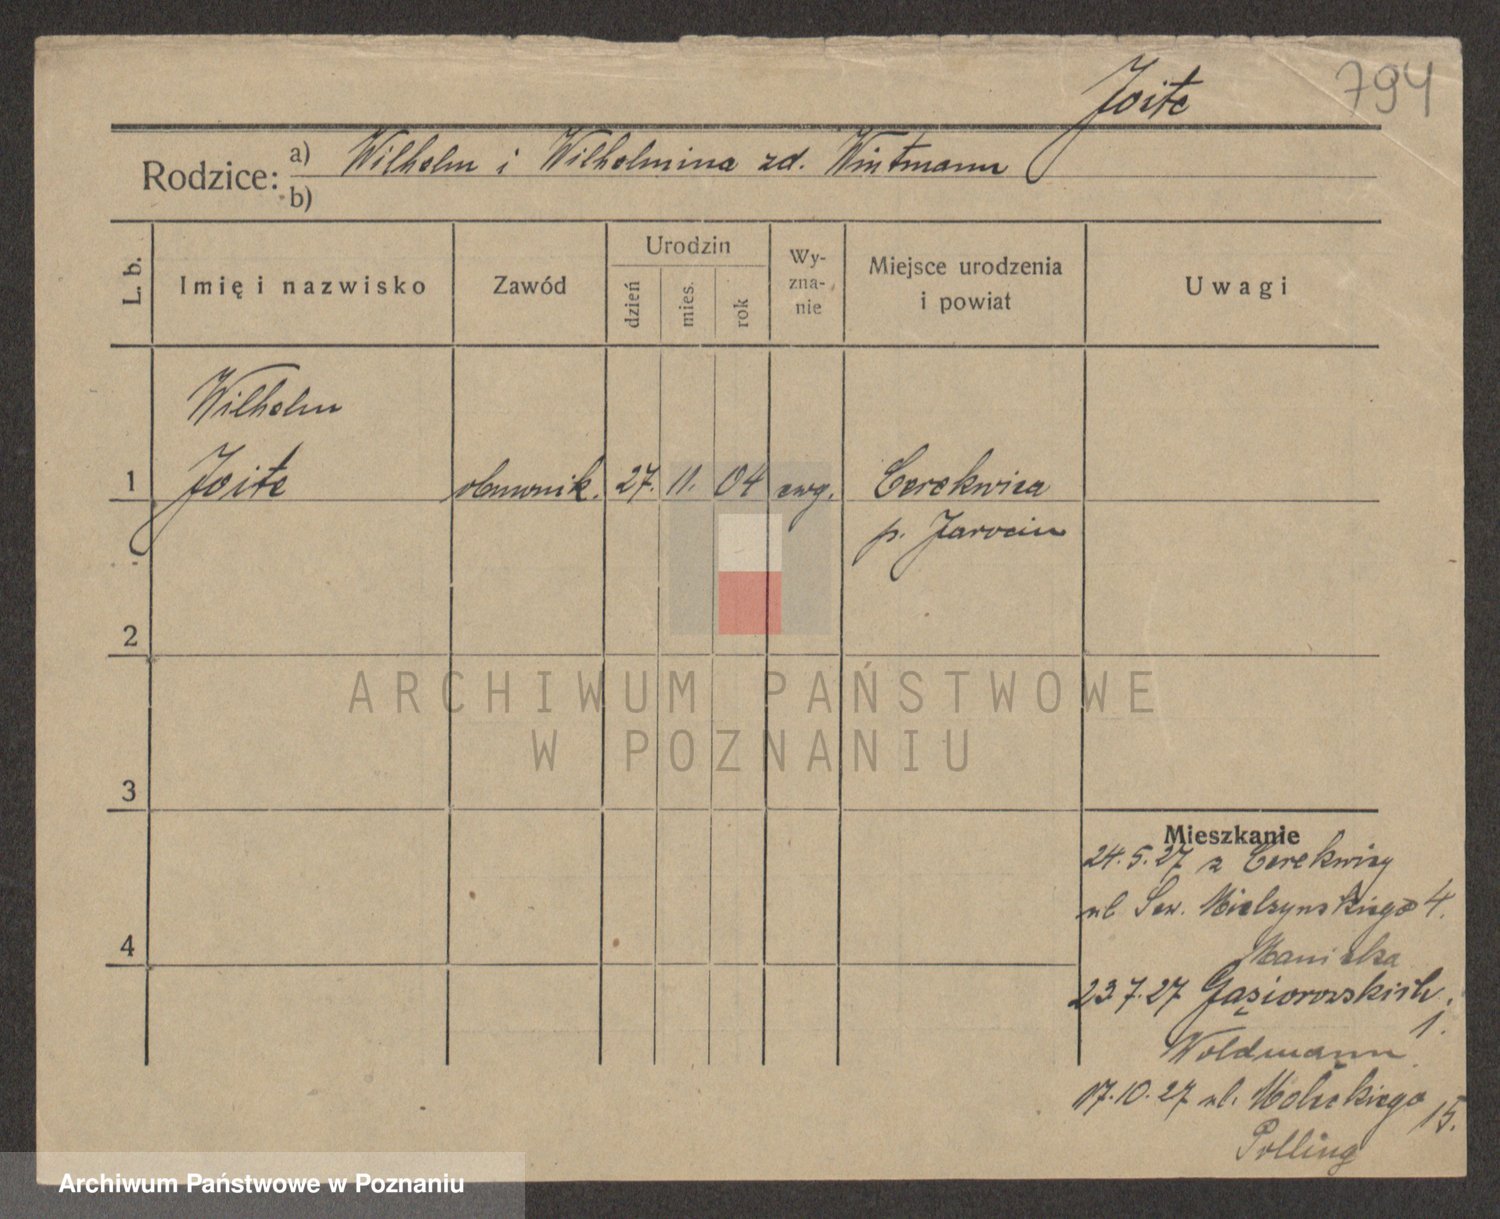 Joite
794
Rodzice: a) Wilhelm i Wilhelmina zd. Wintmann
b)
L. b.
Imię i nazwisko
Zawód
Urodzin
dzień
mies.
rok
Wy-
zna-
nie
Miejsce urodzenia
i powiat
Uwagi
Wilhelm
1 Joite
27. 11. 04 ewg. Cerekwica
p. Jarocin
2
3
4
Mieszkanie
24.5.27 z Cerekwicy
ul Sew. Mielzynskiego 4.
23.7.27 Gąsiorowskich
1.
Woldmann
17.10.27 ul. 15.
Polling
ARCHIWUM PAŃSTWOWE
W POZNANIU
Archiwum Państwowe w Poznaniu